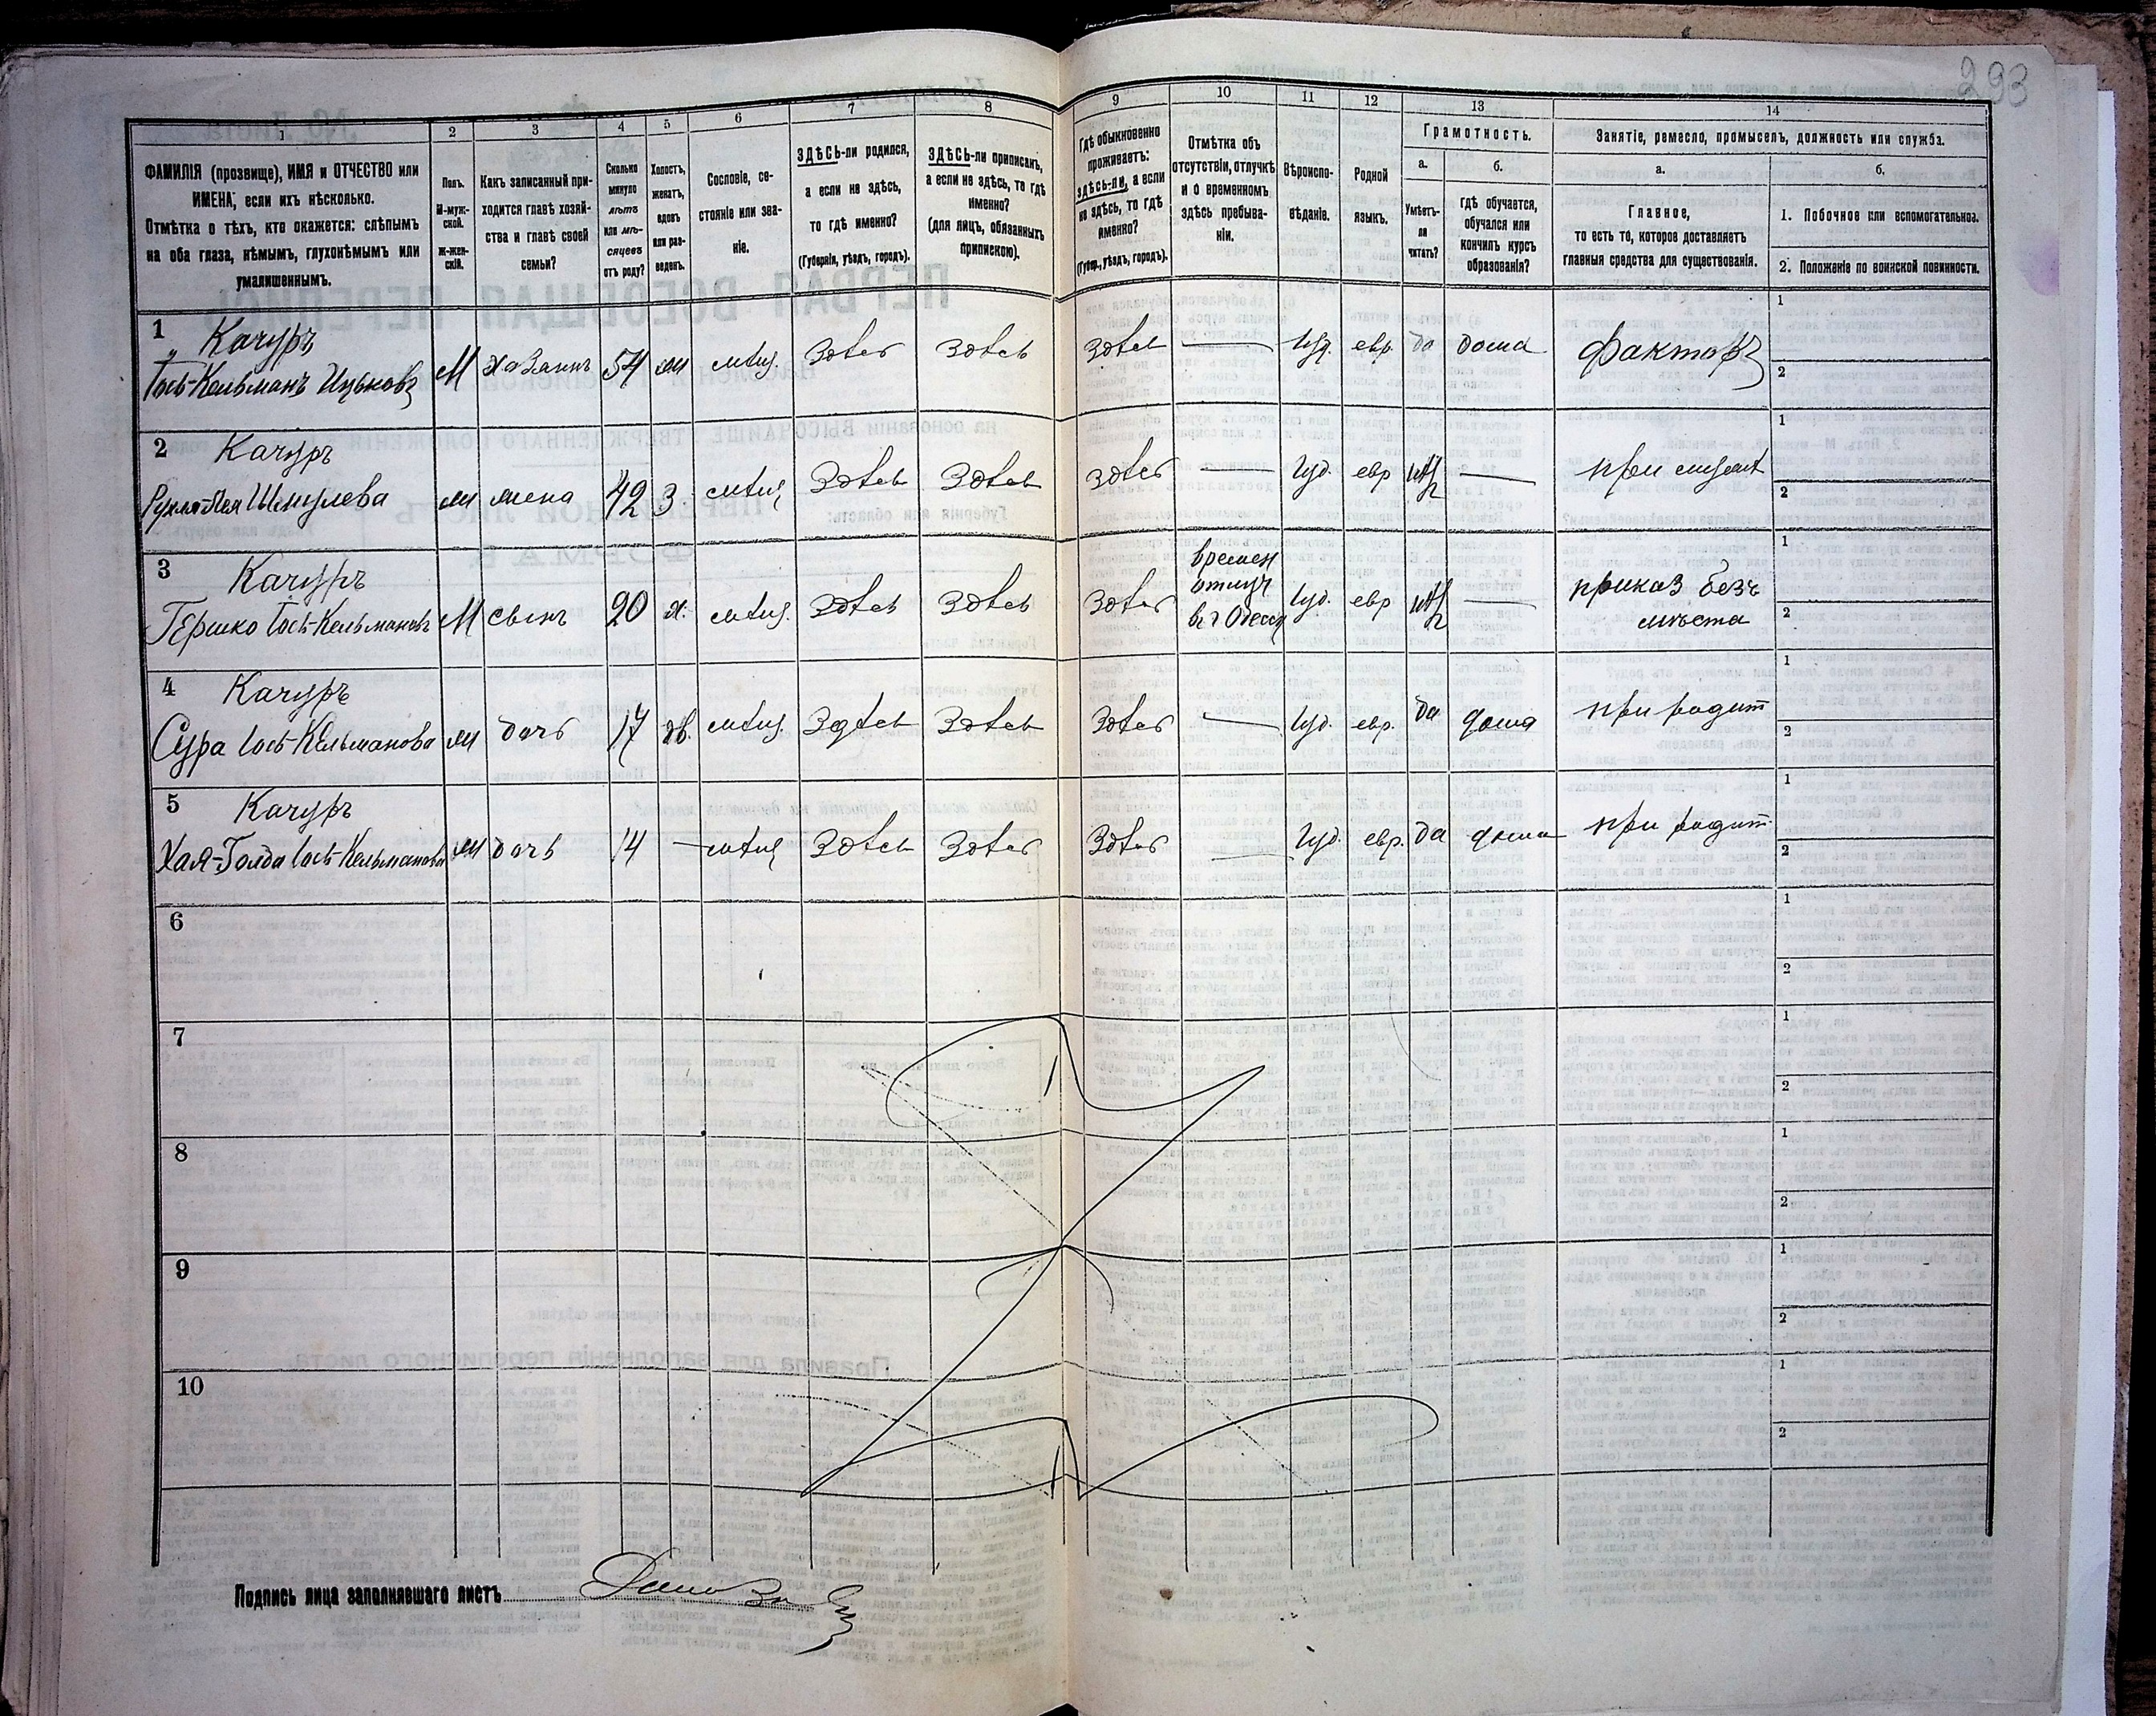 293
1
2
3
4
5
6
7
8
9
10
11
12
13
14
ФАМИЛІЯ (прозвище), ИМЯ и ОТЧЕСТВО или
ИМЕНА, если ихъ нѣсколько.
Отмѣтка о тѣхъ, кто окажется: слѣпымъ
на оба глаза, нѣмымъ, глухонѣмымъ или
умалишеннымъ.
Полъ.
М-муж-
ской.
Ж-жен-
скій.
Какъ записанный при-
ходится главѣ хозяй-
ства и главѣ своей
семьи?
Сколько
минуло
лѣтъ
или мѣ-
сяцевъ
отъ роду?
Холостъ,
женатъ,
вдовъ
или раз-
веденъ.
Сословіе, со-
стояніе или зва-
ніе.
ЗДѢСЬ-ли родился,
а если не здѣсь,
то гдѣ именно?
(Губернія, уѣздъ, городъ).
ЗДѢСЬ-ли приписанъ,
а если не здѣсь, то гдѣ
именно?
(для лицъ, обязанныхъ
припискою).
Гдѣ обыкновенно
проживаетъ:
здѣсь-ли, а если
не здѣсь, то гдѣ
именно?
(Губер., уѣздъ, городъ).
Отмѣтка объ
отсутствіи, отлучкѣ
и о временномъ
здѣсь пребыва-
ніи.
Вѣроиспо-
вѣданіе.
Родной
языкъ.
Грамотность.
а.
Умѣетъ-
ли
читать?
б.
гдѣ обучается,
обучался или
кончилъ курсъ
образованія?
Занятіе, ремесло, промыселъ, должность или служба.
а.
Главное,
то есть то, которое доставляетъ
главныя средства для существованія.
б.
1. Побочное или вспомогательное.
2. Положеніе по воинской повинности.
1 Качуръ
Іось-Кельманъ Ицьковъ М хозяинъ 54 ж мѣщ. Здѣсь Здѣсь Здѣсь — Іуд. евр. да дома факторъ
1
2
2 Качуръ
Шмулева ж жена 42 З. мѣщ Здѣсь Здѣсь Здѣсь — Іуд. евр нѣт — при
1
2
3 Качуръ
Гершко Іось-Кельмановъ М сынъ 20 х. мѣщ. Здѣсь Здѣсь Здѣсь времен
отлуч
въ г Одессу Іуд. евр нѣт — приказ безъ
мѣста
1
2
4 Качуръ
Сура Іось-Кельманова ж дочь 17 дѣв. мѣщ. Здѣсь Здѣсь Здѣсь — Іуд. евр. да дома при родит
1
2
5 Качуръ
Хая-Голда Іось-Кельманова ж дочь 14 — мѣщ Здѣсь Здѣсь Здѣсь — Іуд. евр. да дома при родит
1
2
6
1
2
7
1
2
8
1
2
9
1
2
10
1
2
Подпись лица заполнявшаго листъ